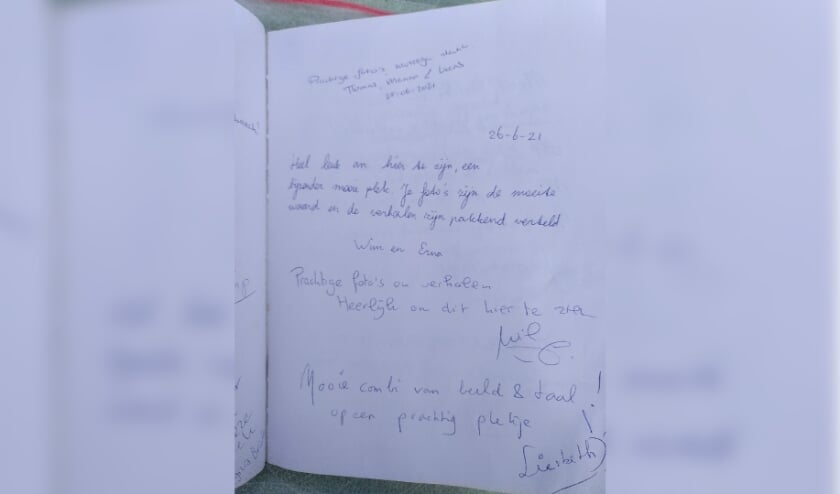 Prachtige foto's,
Thomas, & 
26-6-21
Heel leuk om hier te zijn, een
bijzonder mooie plek. Je foto's zijn de moeite
waard en de verhalen zijn pakkend verteld
Wim en Erna
Prachtige foto's en verhalen
Heerlijk om dit hier te zien
Mooie combi van beeld & taal !
op een prachtig plekje !
Liesbeth